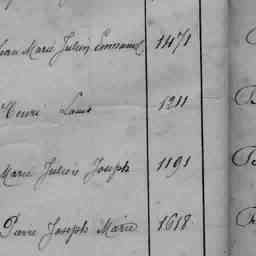 Jean Marie Julien Emmanuel 1471
Henri Louis 1211
Marie Julien Joseph 1191
Pierre Joseph Marie 1618